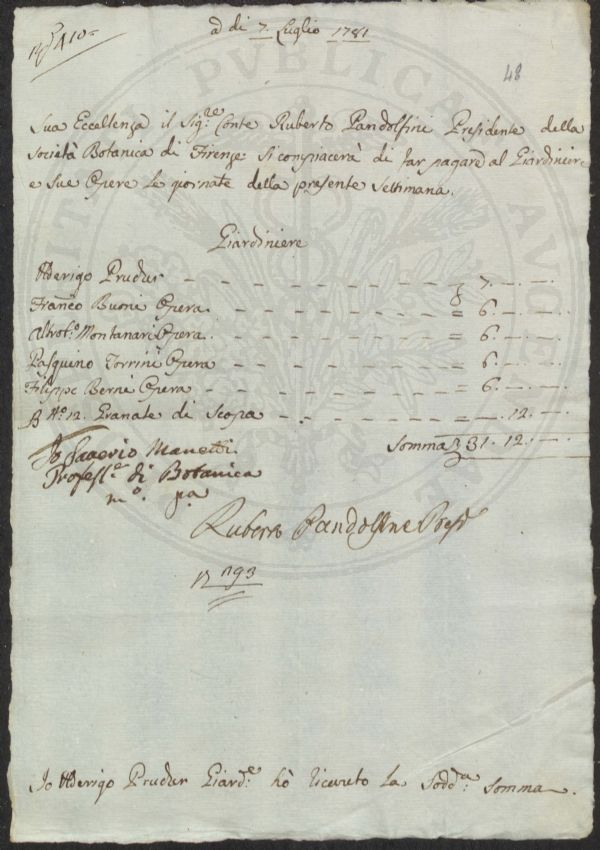 a di 7. Luglio 1781
48
Sua Eccellenza il Sig.re Conte Ruberto Pandolfini Presidente della
Società Botanica di Firenze si compiacerà di far pagare al Giardiniere
e sue Opere le giornate della presente Settimana.
Giardiniere
Uderigo Prucker - - - - - - - - - 7. - . -
Franco Buoni Opera. - - - - - - - = 6. - . -
Montanari Opera. - - - - - - = 6. - . -
Pasquino Torrini Opera - - - - - - 6. - . -
Filippo Berni Opera - - - - - - - = 6. - . -
N.o 12. Granate di Scopa - - - - - = -. 12. -
Somma 31. 12. -
Io Saverio Manetti
Profess.e di Botanica
m.o p.a
Ruberto Pandolfini Presid
193
Io Uderigo Prucker Giard.e hò ricevuto la Sodd.a Somma.